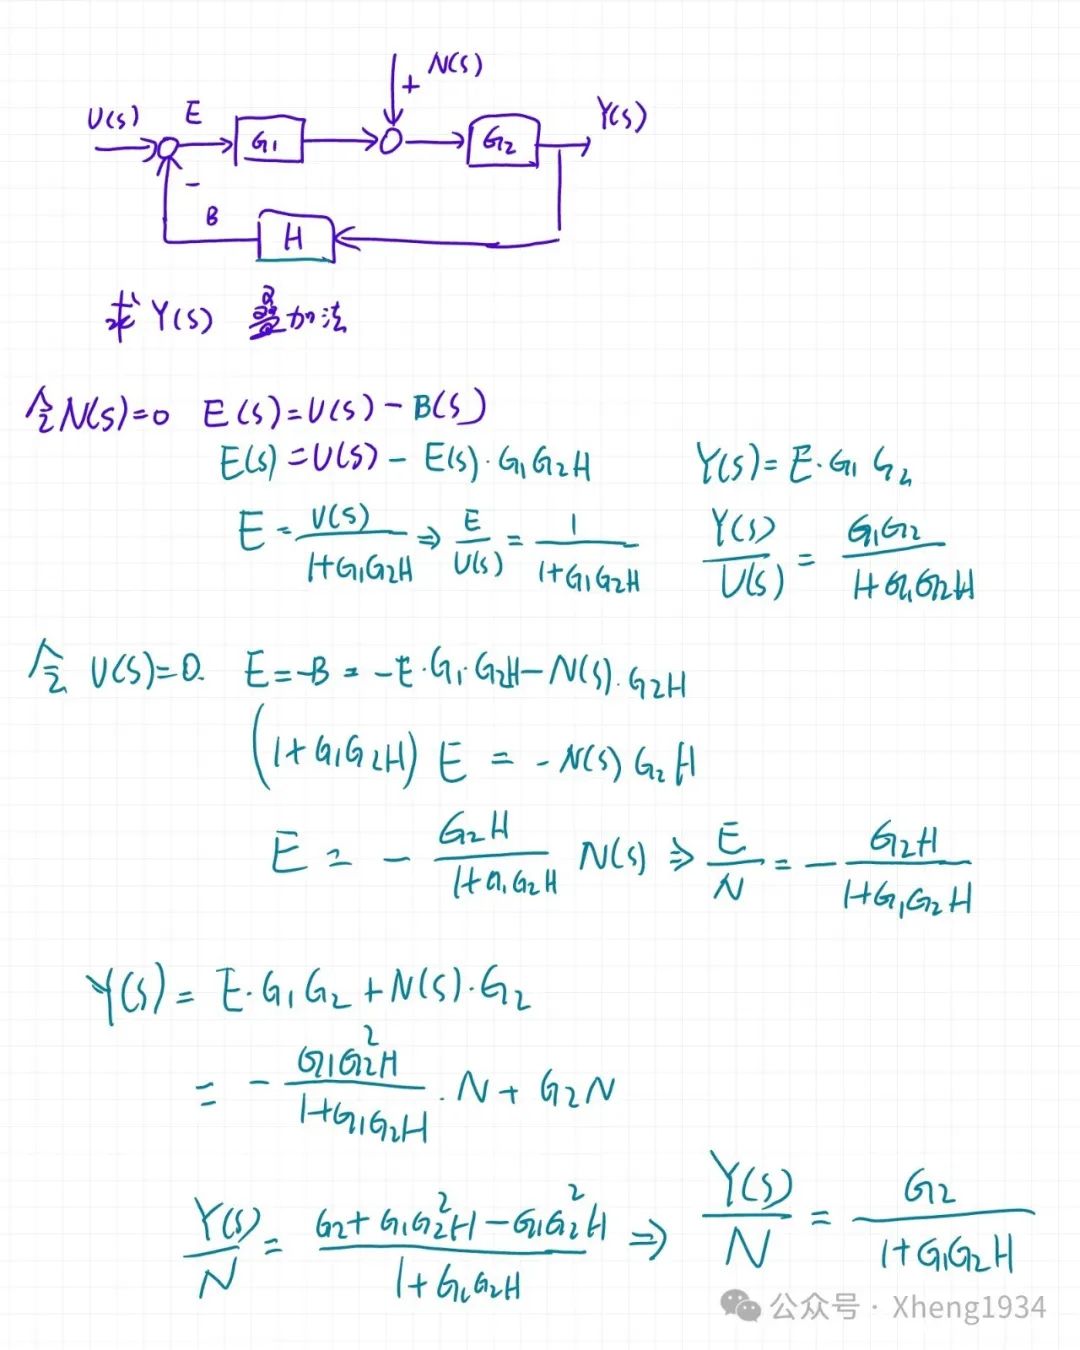 N(s)
+
U(s) E G₁ G₂ Y(s)
−
B H
求 Y(s) 叠加法
令N(s)=0 E(s)=U(s)−B(s)
E(s)=U(s)−E(s)·G₁G₂H Y(s)=E·G₁G₂
E=U(s)/(1+G₁G₂H) ⇒ E/U(s)=1/(1+G₁G₂H) Y(s)/U(s)=G₁G₂/(1+G₁G₂H)
令 U(s)=0. E=−B=−E·G₁·G₂H−N(s)·G₂H
(1+G₁G₂H) E = −N(s) G₂H
E = −G₂H/(1+G₁G₂H) N(s) ⇒ E/N = −G₂H/(1+G₁G₂H)
Y(s) = E·G₁G₂+N(s)·G₂
= −G₁G₂²H/(1+G₁G₂H)·N+G₂N
Y(s)/N = (G₂+G₁G₂²H−G₁G₂²H)/(1+G₁G₂H) ⇒ Y(s)/N = G₂/(1+G₁G₂H)
公众号 · Xheng1934